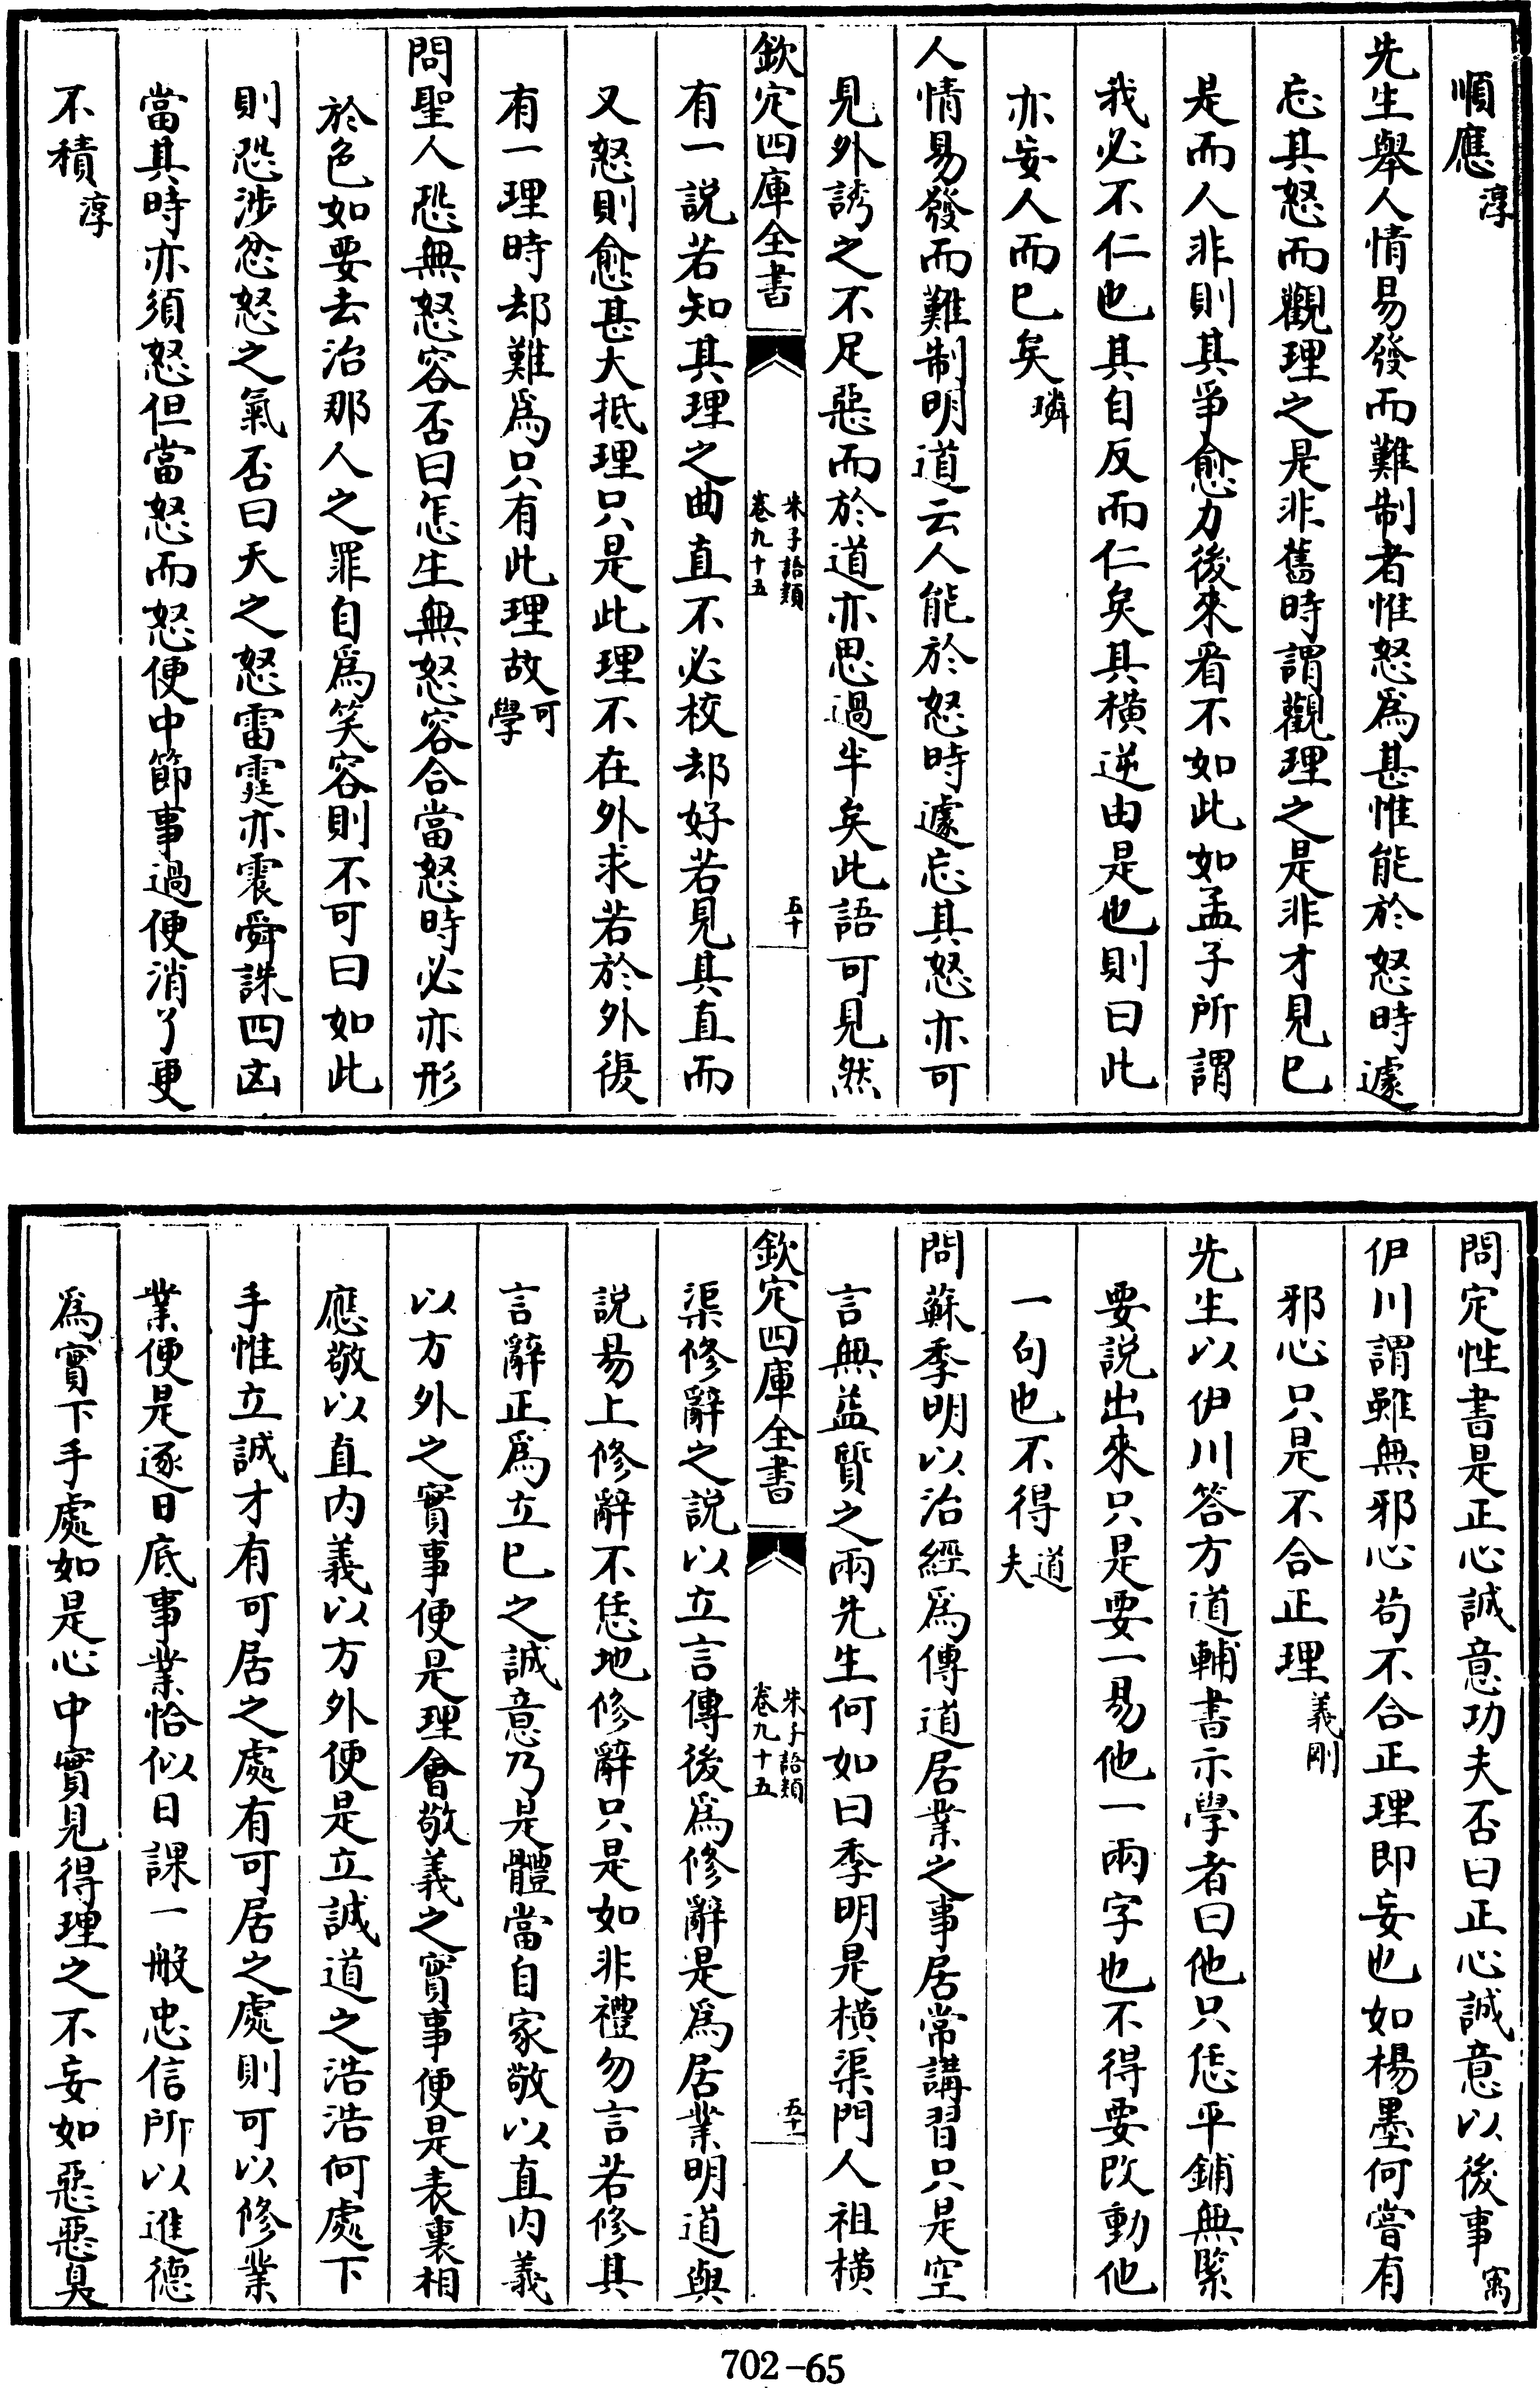 順應淳
先生舉人情易發而難制者惟怒為甚惟能於怒時遽
忘其怒而觀理之是非舊時謂觀理之是非才見已
是而人非則其爭愈力後來看不如此如孟子所謂
我必不仁也其自反而仁矣其橫逆由是也則曰此
亦妄人而已矣璘
人情易發而難制明道云人能於怒時遽忘其怒亦可
見外誘之不足惡而於道亦思過半矣此語可見然
欽定四庫全書 朱子語類卷九十五 五十
有一説若知其理之曲直不必校却好若見其直而
又怒則愈甚大抵理只是此理不在外求若於外復
有一理時却難為只有此理故可學
問聖人恐無怒容否曰怎生無怒容合當怒時必亦形
於色如要去治那人之罪自為笑容則不可曰如此
則恐涉忿怒之氣否曰天之怒雷霆亦震舜誅四凶
當其時亦須怒但當怒而怒便中節事過便消了更
不積淳
問定性書是正心誠意功夫否曰正心誠意以後事㝢
伊川謂雖無邪心苟不合正理即妄也如楊墨何嘗有
邪心只是不合正理義剛
先生以伊川答方道輔書示學者曰他只恁平鋪無緊
要説出來只是要一易他一兩字也不得要改動他
一句也不得道夫
問蘇季明以治經為傳道居業之事居常講習只是空
言無益質之兩先生何如曰季明是橫渠門人祖橫
欽定四庫全書 朱子語類卷九十五 五十一
渠修辭之説以立言傳後為修辭是為居業明道與
説易上修辭不恁地修辭只是如非禮勿言若修其
言辭正為立已之誠意乃是體當自家敬以直内義
以方外之實事便是理會敬義之實事便是表裏相
應敬以直内義以方外便是立誠道之浩浩何處下
手惟立誠才有可居之處有可居之處則可以修業
業便是逐日底事業恰似日課一般忠信所以進德
為實下手處如是心中實見得理之不妄如惡惡臭
702-65